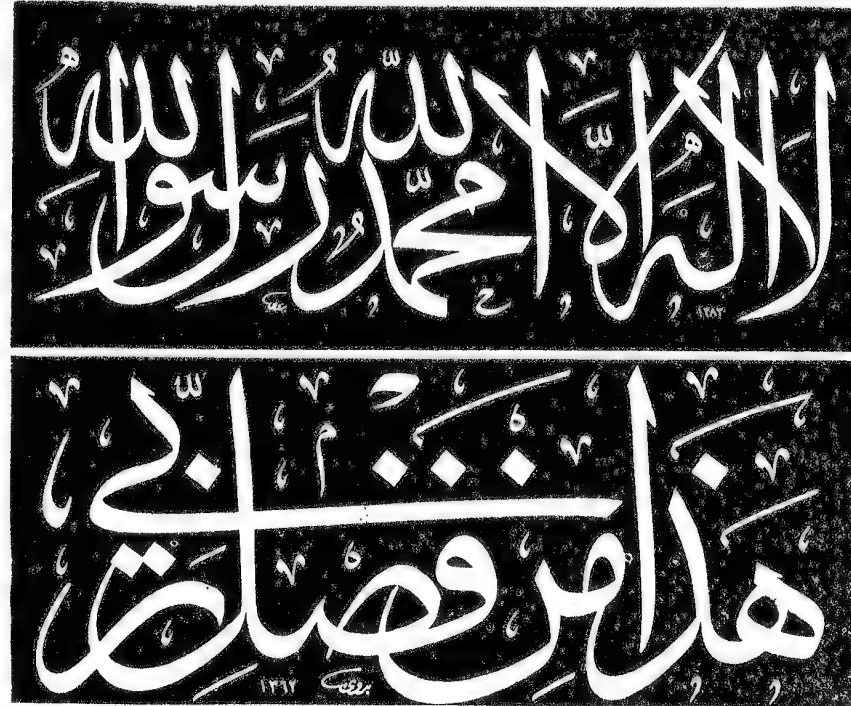 لا اله الا الله محمد رسول الله
١٣٨٣
هذا من فضل ربي
١٣٦٢